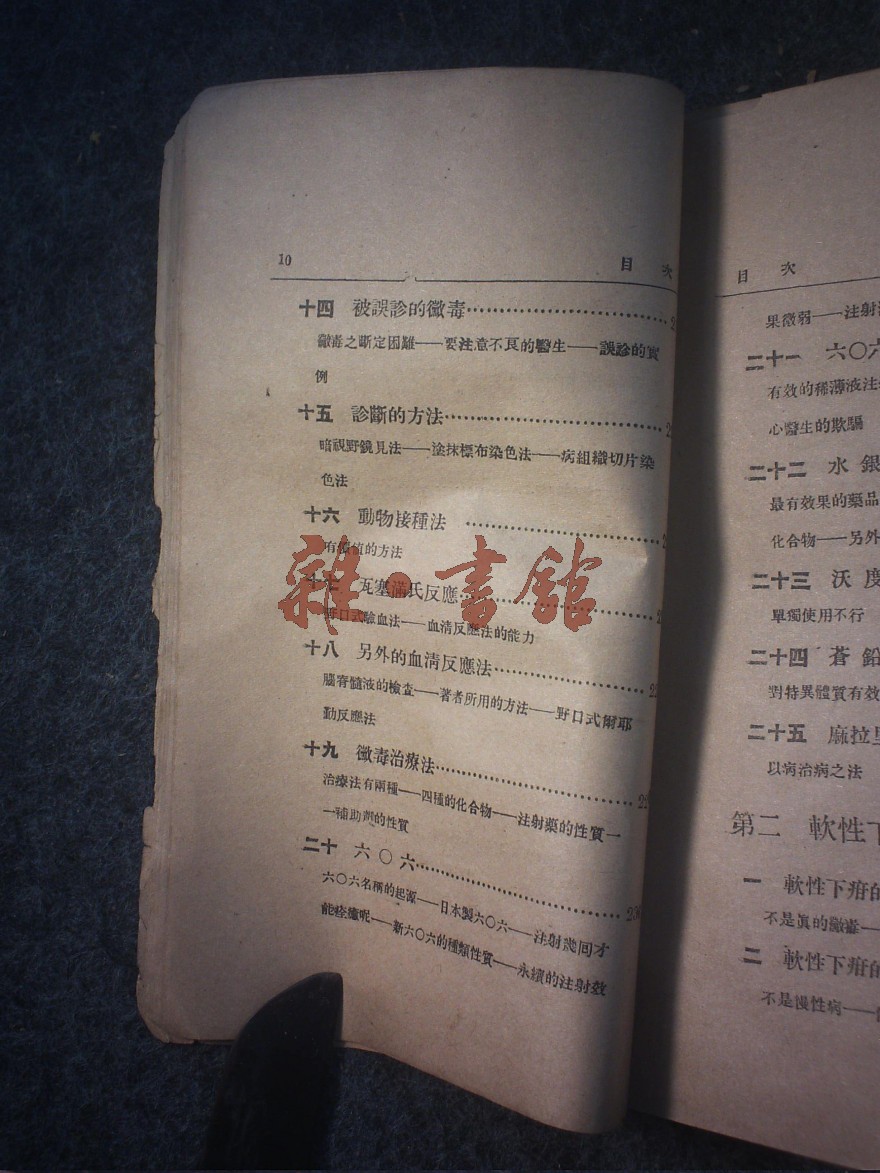 10
目 次
十四 被誤診的黴毒
黴毒之斷定困難——要注意不良的醫生——誤診的實
例
十五 診斷的方法
暗視野鏡見法——塗抹標布染色法——病組織切片染
色法
十六 動物接種法
有價值的方法
十七 瓦塞滿氏反應
野口式驗血法——血清反應法的能力
十八 另外的血清反應法
腦脊髓液的檢查——著者所用的方法——野口式爾耶
勤反應法
十九 黴毒治療法
治療法有兩種——四種的化合物——注射藥的性質—
—補助劑的性質
二十 六〇六
六〇六名稱的起源——日本製六〇六——注射幾囘才
能痊癒呢——新六〇六的種類性質——永續的注射效
目 次
果微弱——注射
二十一 六〇六
有效的稀薄液注
心醫生的欺騙
二十二 水銀
最有效果的藥品
化合物——另外
二十三 沃度
單獨使用不行
二十四 蒼鉛
對特異體質有效
二十五 麻拉里
以病治病之法
第二 軟性下
一 軟性下疳的
不是眞的黴毒——
二 軟性下疳的
不是慢性病——
雜·書館